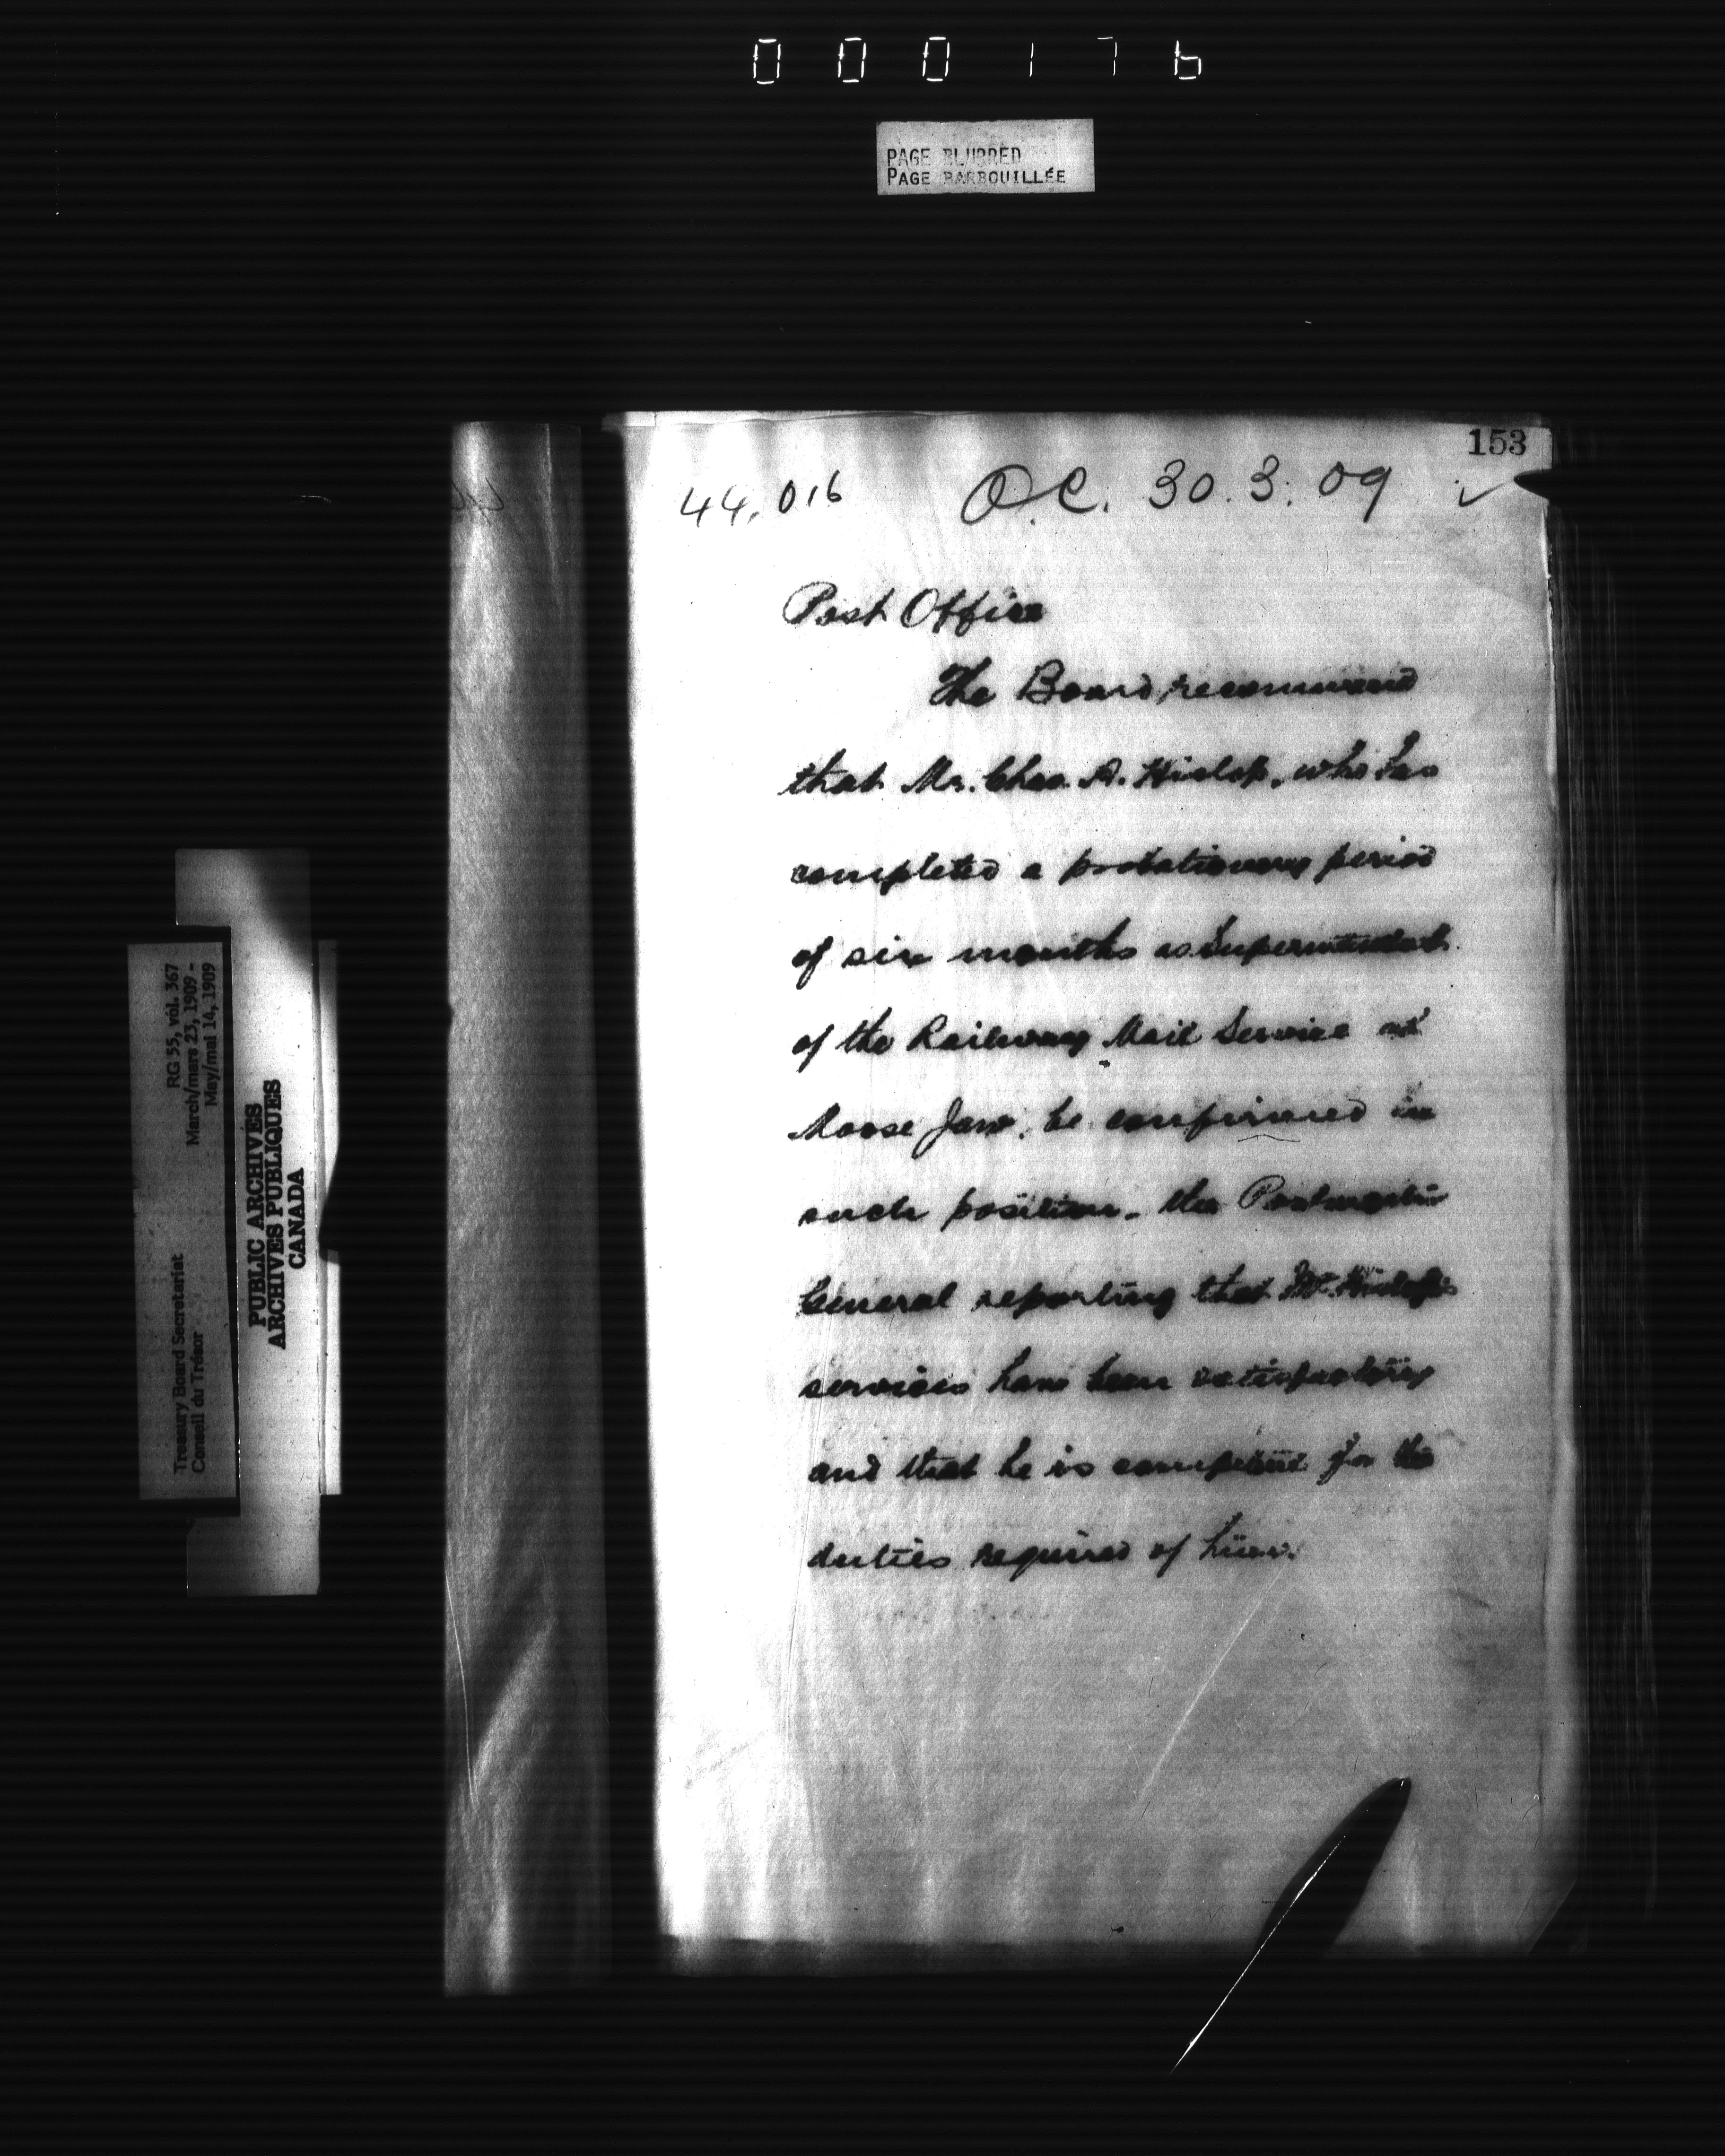 000176
PAGE BLURRED
PAGE BARBOUILLÉE
153
44,016 O.C. 30.3.09 ✓
Post Office
The Board recommend
that Mr. Chas. A. Hislop, who has
completed a probationary period
of six months as Superintendent
of the Railway Mail Service at
Moose Jaw, be confirmed in
such position, the Postmaster
General reporting that Mr. Hislop's
services have been satisfactory
and that he is competent for the
duties required of him.
RG 55, vol. 367
March/mars 23, 1909 -
May/mai 14, 1909
Treasury Board Secretariat
Conseil du Trésor
PUBLIC ARCHIVES
ARCHIVES PUBLIQUES
CANADA